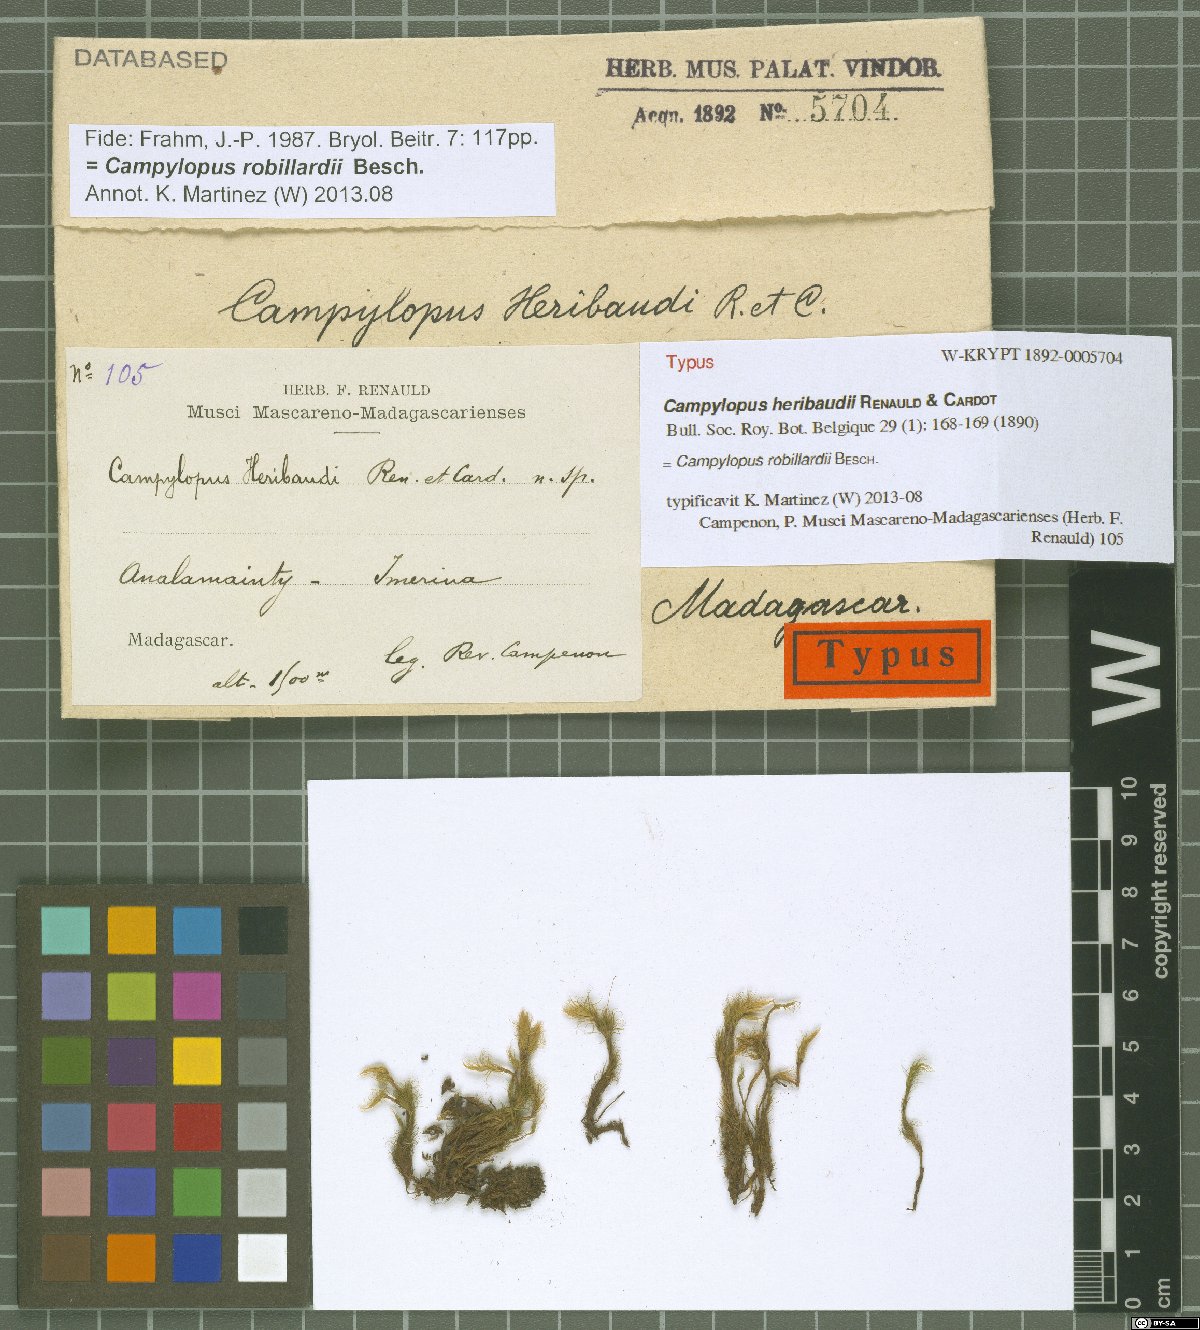 DATABASED
HERB. MUS. PALAT. VINDOB.
Acqn. 1892 No. 5704.
Fide: Frahm, J.-P. 1987. Bryol. Beitr. 7: 117pp.
= Campylopus robillardii Besch.
Annot. K. Martinez (W) 2013.08
Campylopus Heribaudi R. et C.
Nº 105
HERB. F. RENAULD
Musci Mascareno-Madagascarienses
Campylopus Heribaudi Ren. et Card. n. sp.
Analamainty - Imerina
Madagascar.
leg. Rev. Campenon
alt. 1500 m
Typus
W-KRYPT 1892-0005704
Campylopus heribaudii RENAULD & CARDOT
Bull. Soc. Roy. Bot. Belgique 29 (1): 168-169 (1890)
= Campylopus robillardii BESCH.
typificavit K. Martinez (W) 2013-08
Campenon, P. Musci Mascareno-Madagascarienses (Herb. F.
Renauld) 105
Madagascar.
Typus
W
copyright reserved
10
9
8
7
6
5
4
3
2
1
0
cm
cc BY-SA